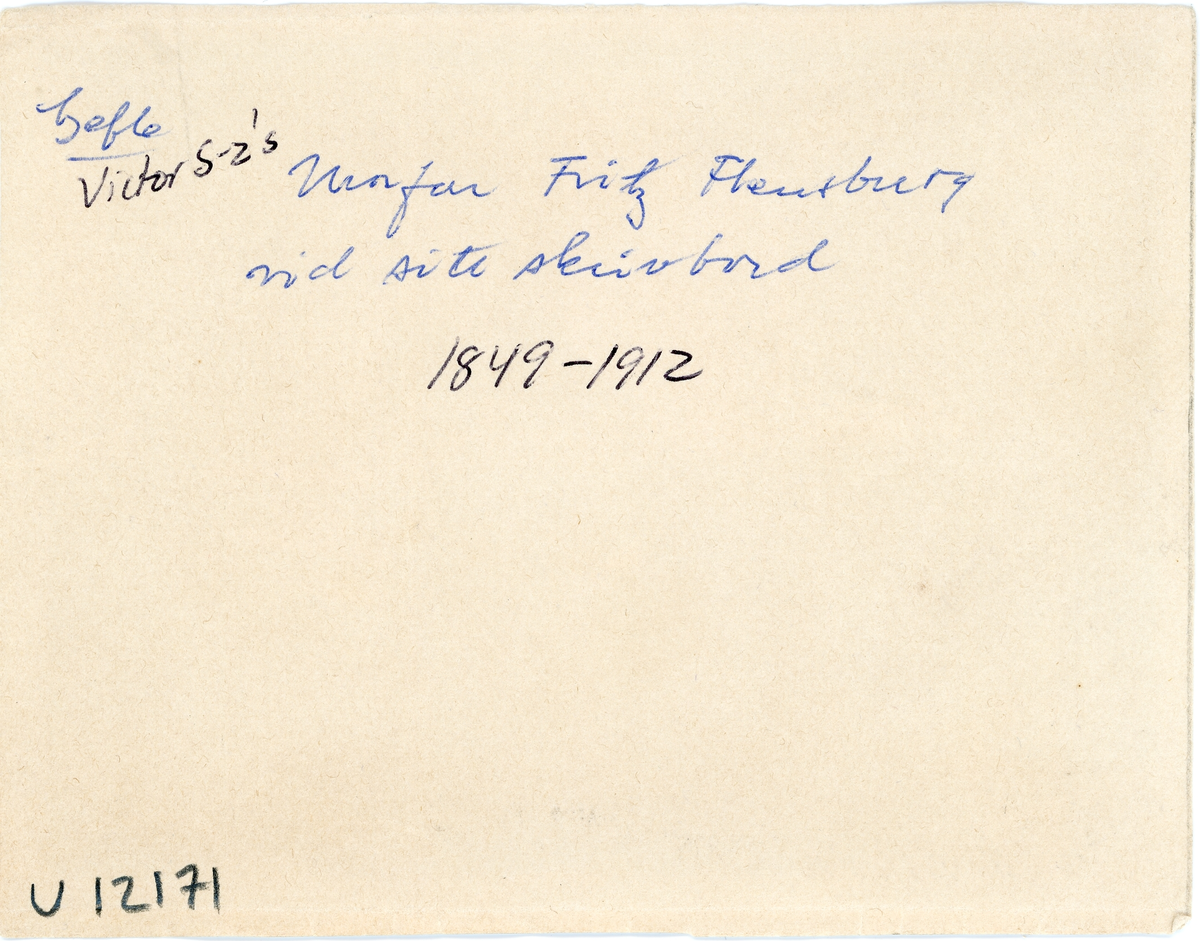 Gefle
Victor S-z's Morfar Fritz Flensburg
vid sitt skrivbord
1849-1912
U 12171